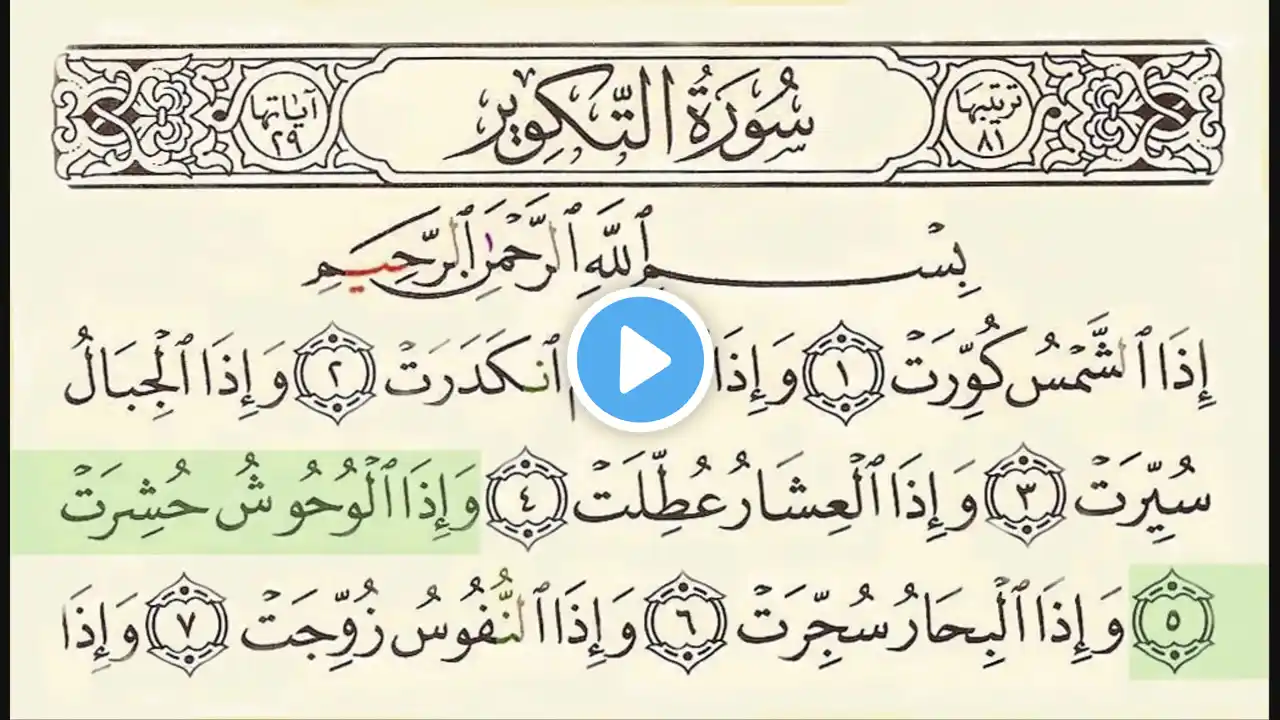 ترتيبها
٨١
سُورَةُ التَّكْوِير
آياتها
٢٩
بِسْمِ ٱللَّهِ ٱلرَّحْمَٰنِ ٱلرَّحِيمِ
إِذَا ٱلشَّمْسُ كُوِّرَتْ ١ وَإِذَا ٱنكَدَرَتْ ٢ وَإِذَا ٱلْجِبَالُ
سُيِّرَتْ ٣ وَإِذَا ٱلْعِشَارُ عُطِّلَتْ ٤ وَإِذَا ٱلْوُحُوشُ حُشِرَتْ
٥ وَإِذَا ٱلْبِحَارُ سُجِّرَتْ ٦ وَإِذَا ٱلنُّفُوسُ زُوِّجَتْ ٧ وَإِذَا